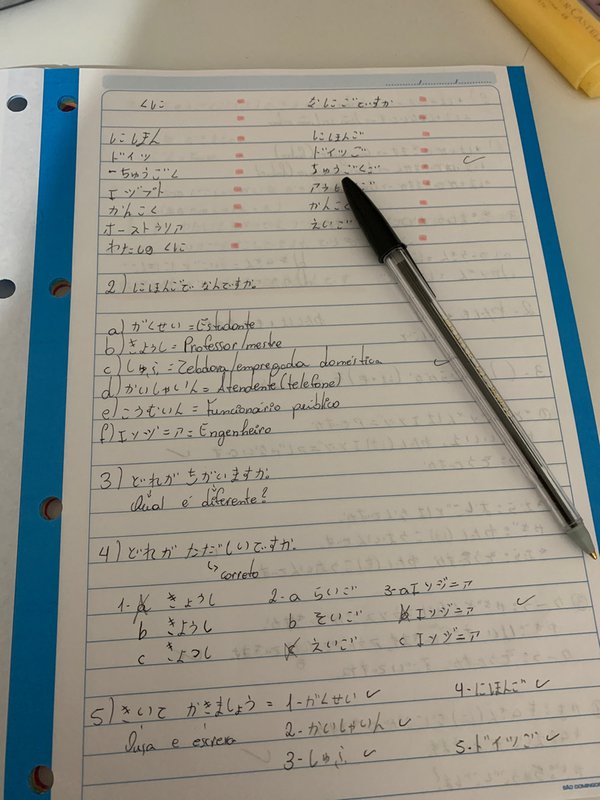 くに なにごですか
にほん にほんご
ドイツ ドイツご
ちゅうごく ちゅうごくご
エジプト
かんこく かんこく
オーストラリア えいご
わたしの くに
2) にほんごで なんですか。
a) がくせい = Estudante
b) きょうし = Professor/mestre
c) しゅふ = Zeladora/empregada doméstica
d) かいしゃいん = Atendente (telefone)
e) こうむいん = Funcionário público
f) エンジニア = Engenheiro
3) どれが ちがいますか。
Qual é diferente?
4) どれが ただしいですか。
↳ correto
1- a きょうし 2- a らいご 3- a エンジニア
b きようし b そいご b エンジニア
c きよつし c えいご c エンジニア
5) きいて かきましょう = 1- がくせい ✓ 4- にほんご ✓
Ouça e escreva 2- かいしゃいん ✓
3- しゅふ ✓ 5- ドイツご ✓